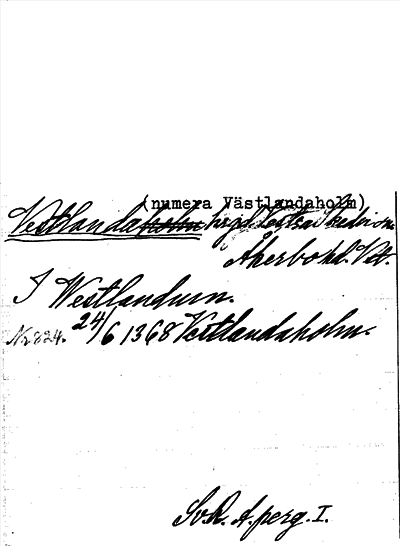 (numera Västlandaholm)
Vestlandaholm hrgd. Vestra Skedvi sn.
Åkerbo hd. Vst.
I Westlandum.
Nr 824. 24/6 1368 Vestlandaholm.
Sv.R. A. perg. I.